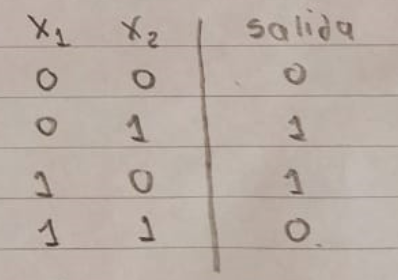 x1 x2 salida
0 0 0
0 1 1
1 0 1
1 1 0.